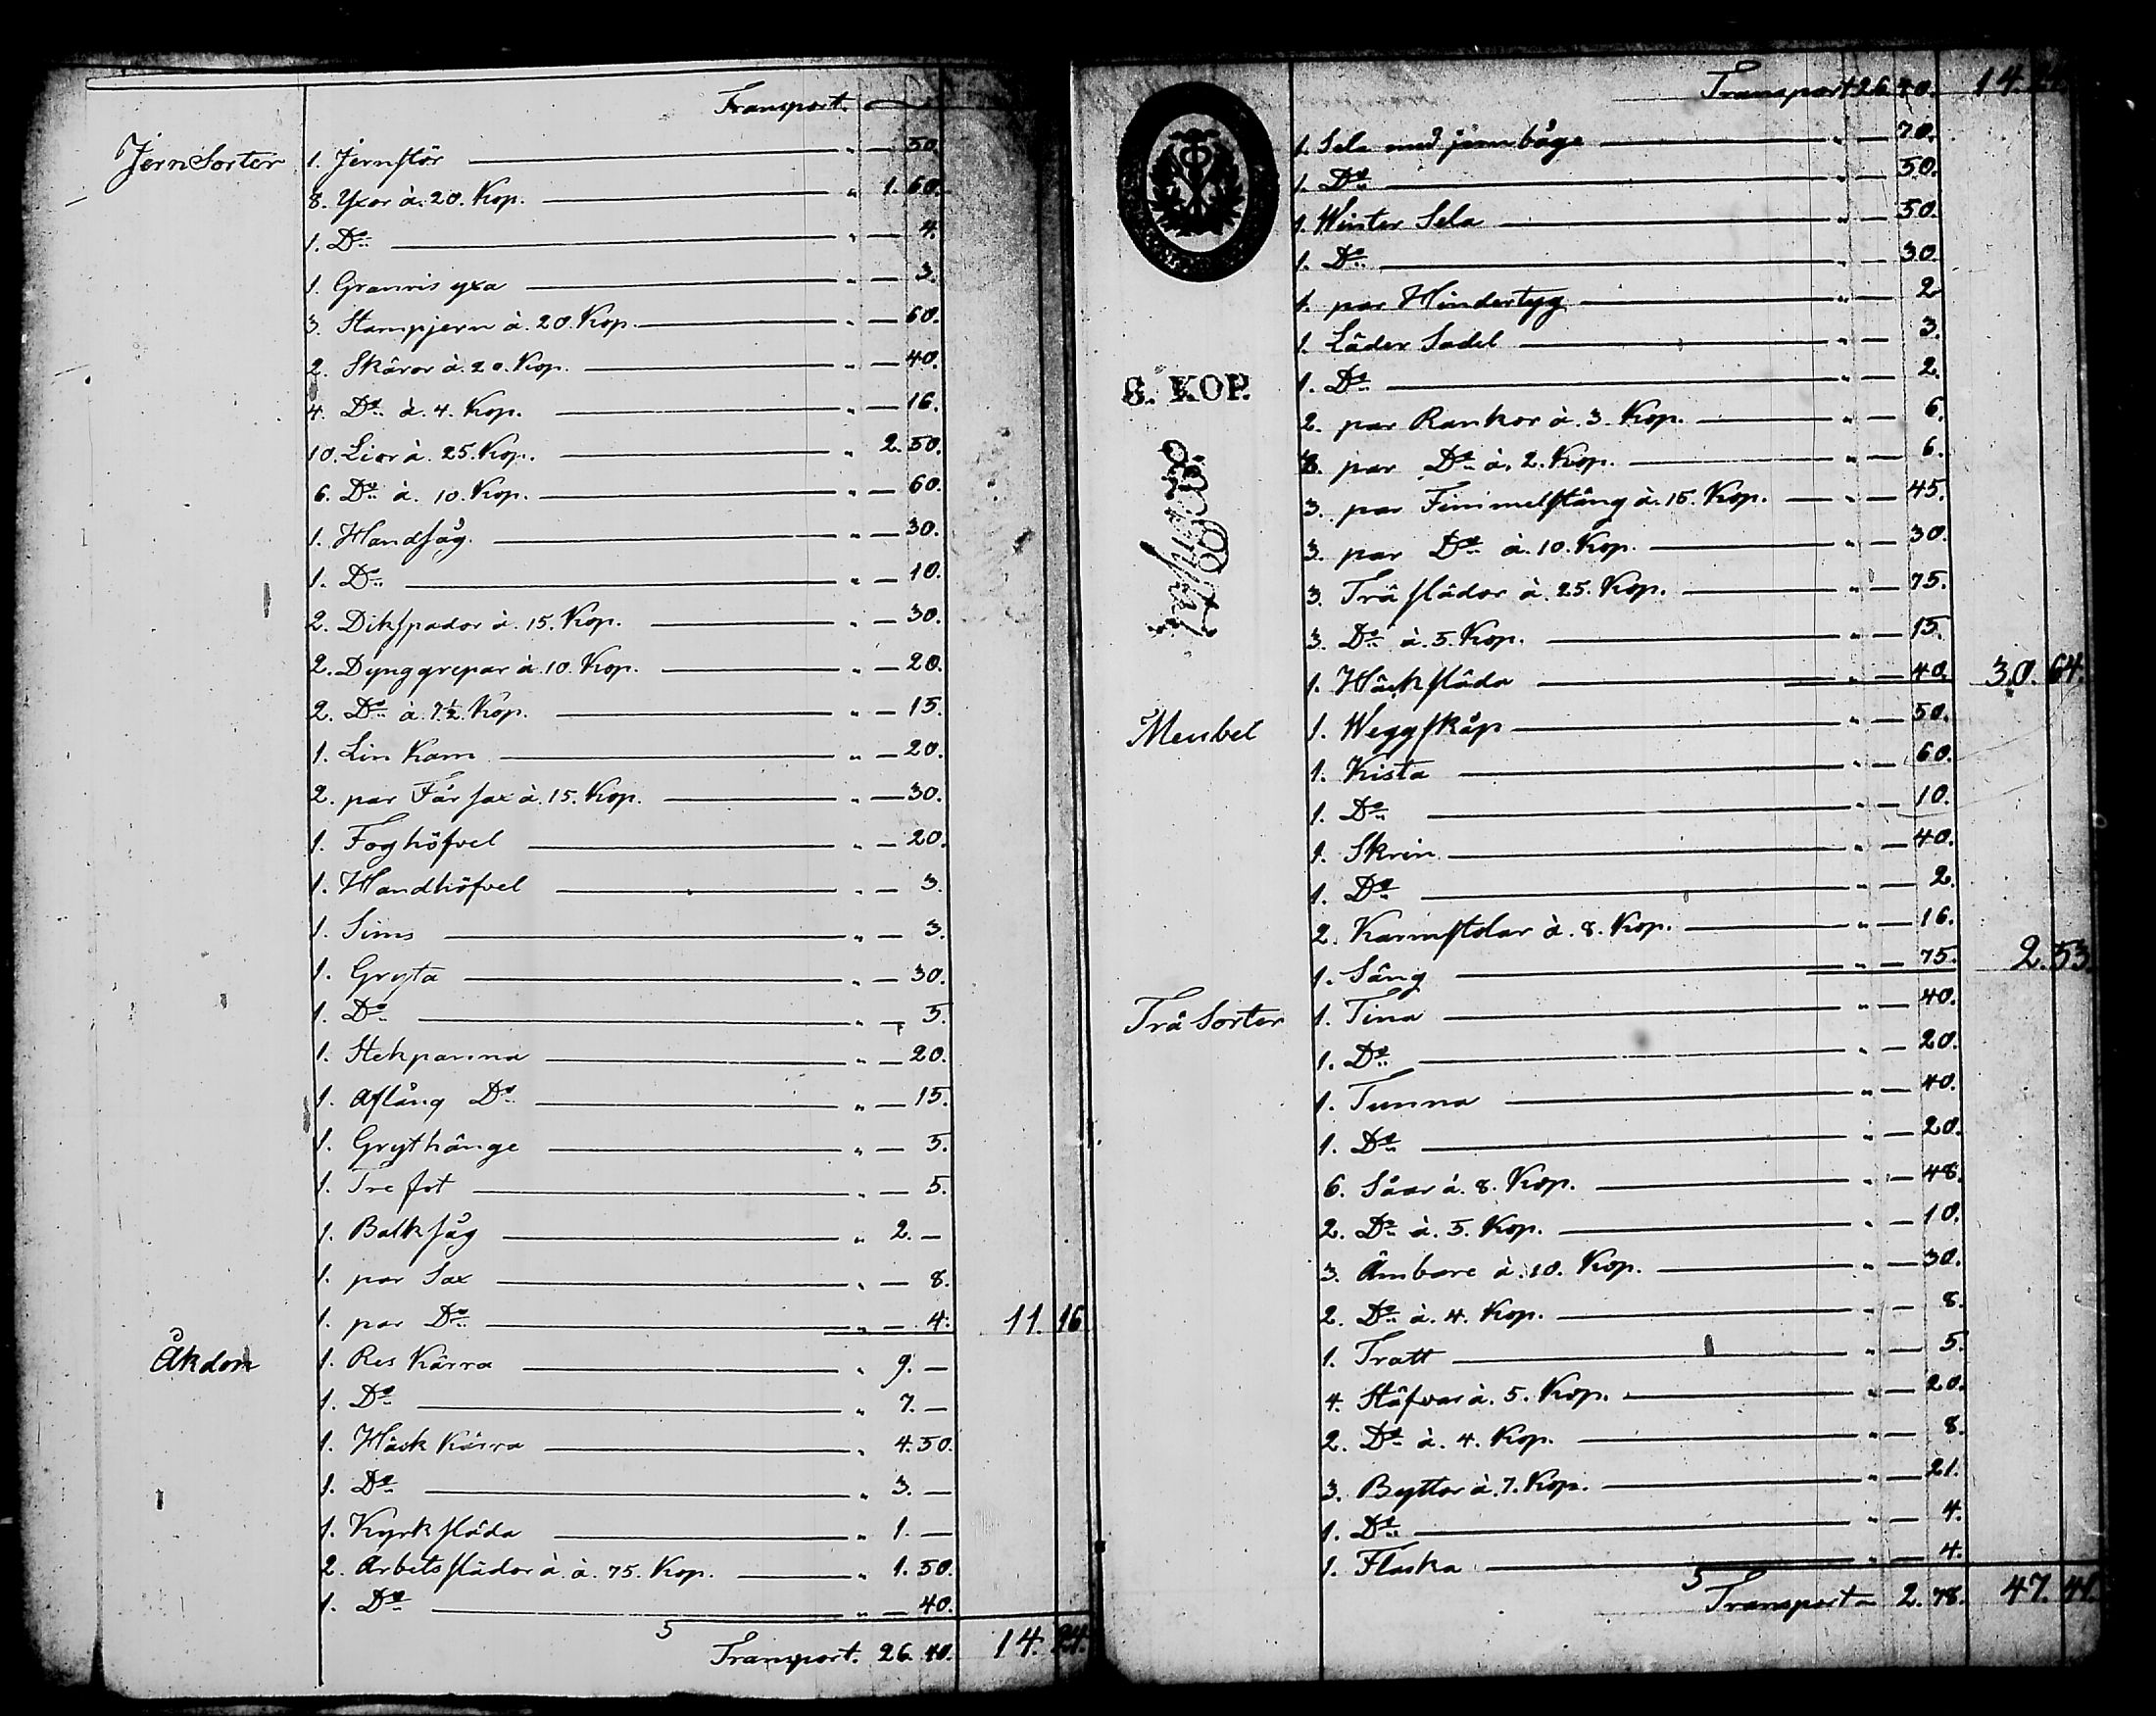 Transport.
Jern Sorter 1. Jernstör " — 50.
8. Yxor à. 20. Kop. " 1. 60.
1. Do " — 4.
1. Granris yxa " — 3.
3. Stampjern à. 20. Kop. " — 60.
2. Skäror à. 20. Kop. " — 40.
4. Do à. 4. Kop. " — 16.
10. Lior à. 25. Kop. " 2. 50.
6. Do à. 10. Kop. " — 60.
1. Handsåg. " — 30.
1. Do " — 10.
2. Dikspador à. 15. Kop. " — 30.
2. Dynggrepar à. 10. Kop. " — 20.
2. Do à. 7½. Kop. " — 15.
1. Lin Kam " — 20.
2. par Fårsax à. 15. Kop. " — 30.
1. Foghöfvel " — 20.
1. Handhöfvel " — 3.
1. Sims " — 3.
1. Gryta " — 30.
1. Do " — 5.
1. Stekpanna " — 20.
1. Aflång Do " — 15.
1. Grythänge " — 5.
1. Trefot " — 5.
1. Balksåg " 2. —
1. par Sax " — 8.
1. par Do " — 4. 11. 16
Åkdon 1. Res Kärra " 9. —
1. Do " 7. —
1. Häck Kärra " 4. 50.
1. Do " 3. —
1. Kyrksläda " 1. —
2. Arbetsslädor à. à. 75. Kop. " 1. 50.
1. Do " — 40.
5
Transport. 26. 40. 14. 24.
Transport 26. 40. 14.
1. Sela med jernbåge " — 70.
1. Do " — 50.
1. Winter Sela " — 50.
1. Do " — 30.
1. par Hindertyg " — 2.
1. Läder Sadel " — 3.
1. Do " — 2.
2. par Rankor à. 3. Kop. " — 6.
3. par Do à. 2. Kop. " — 6.
3. par Fimmelstång à. 15. Kop. " — 45.
3. par Do à. 10. Kop. " — 30.
3. Träslädor à. 25. Kop. " — 75.
3. Do à. 5. Kop. " — 15.
1. Häcksläda " — 40. 30. 64.
8. KOP.
Meubel 1. Weggskåp " — 50.
1. Kista " — 60.
1. Do " — 10.
1. Skrin " — 40.
1. Do " — 2.
2. Karmstolar à. 8. Kop. " — 16.
1. Säng " — 75. 2. 53.
Trä Sorter 1. Tina " — 40.
1. Do " — 20.
1. Tunna " — 40.
1. Do " — 20.
6. Såar à. 8. Kop. " — 48.
2. Do à. 5. Kop. " — 10.
3. Ämbare à. 10. Kop. " — 30.
2. Do à. 4. Kop. " — 8.
1. Tratt " — 5.
4. Stäfvar à. 5. Kop. " — 20.
2. Do à. 4. Kop. " — 8.
3. Byttor à. 7. Kop. " — 21.
1. Do " — 4.
1. Flaska " — 4.
5
Transport 2. 78. 47. 41.